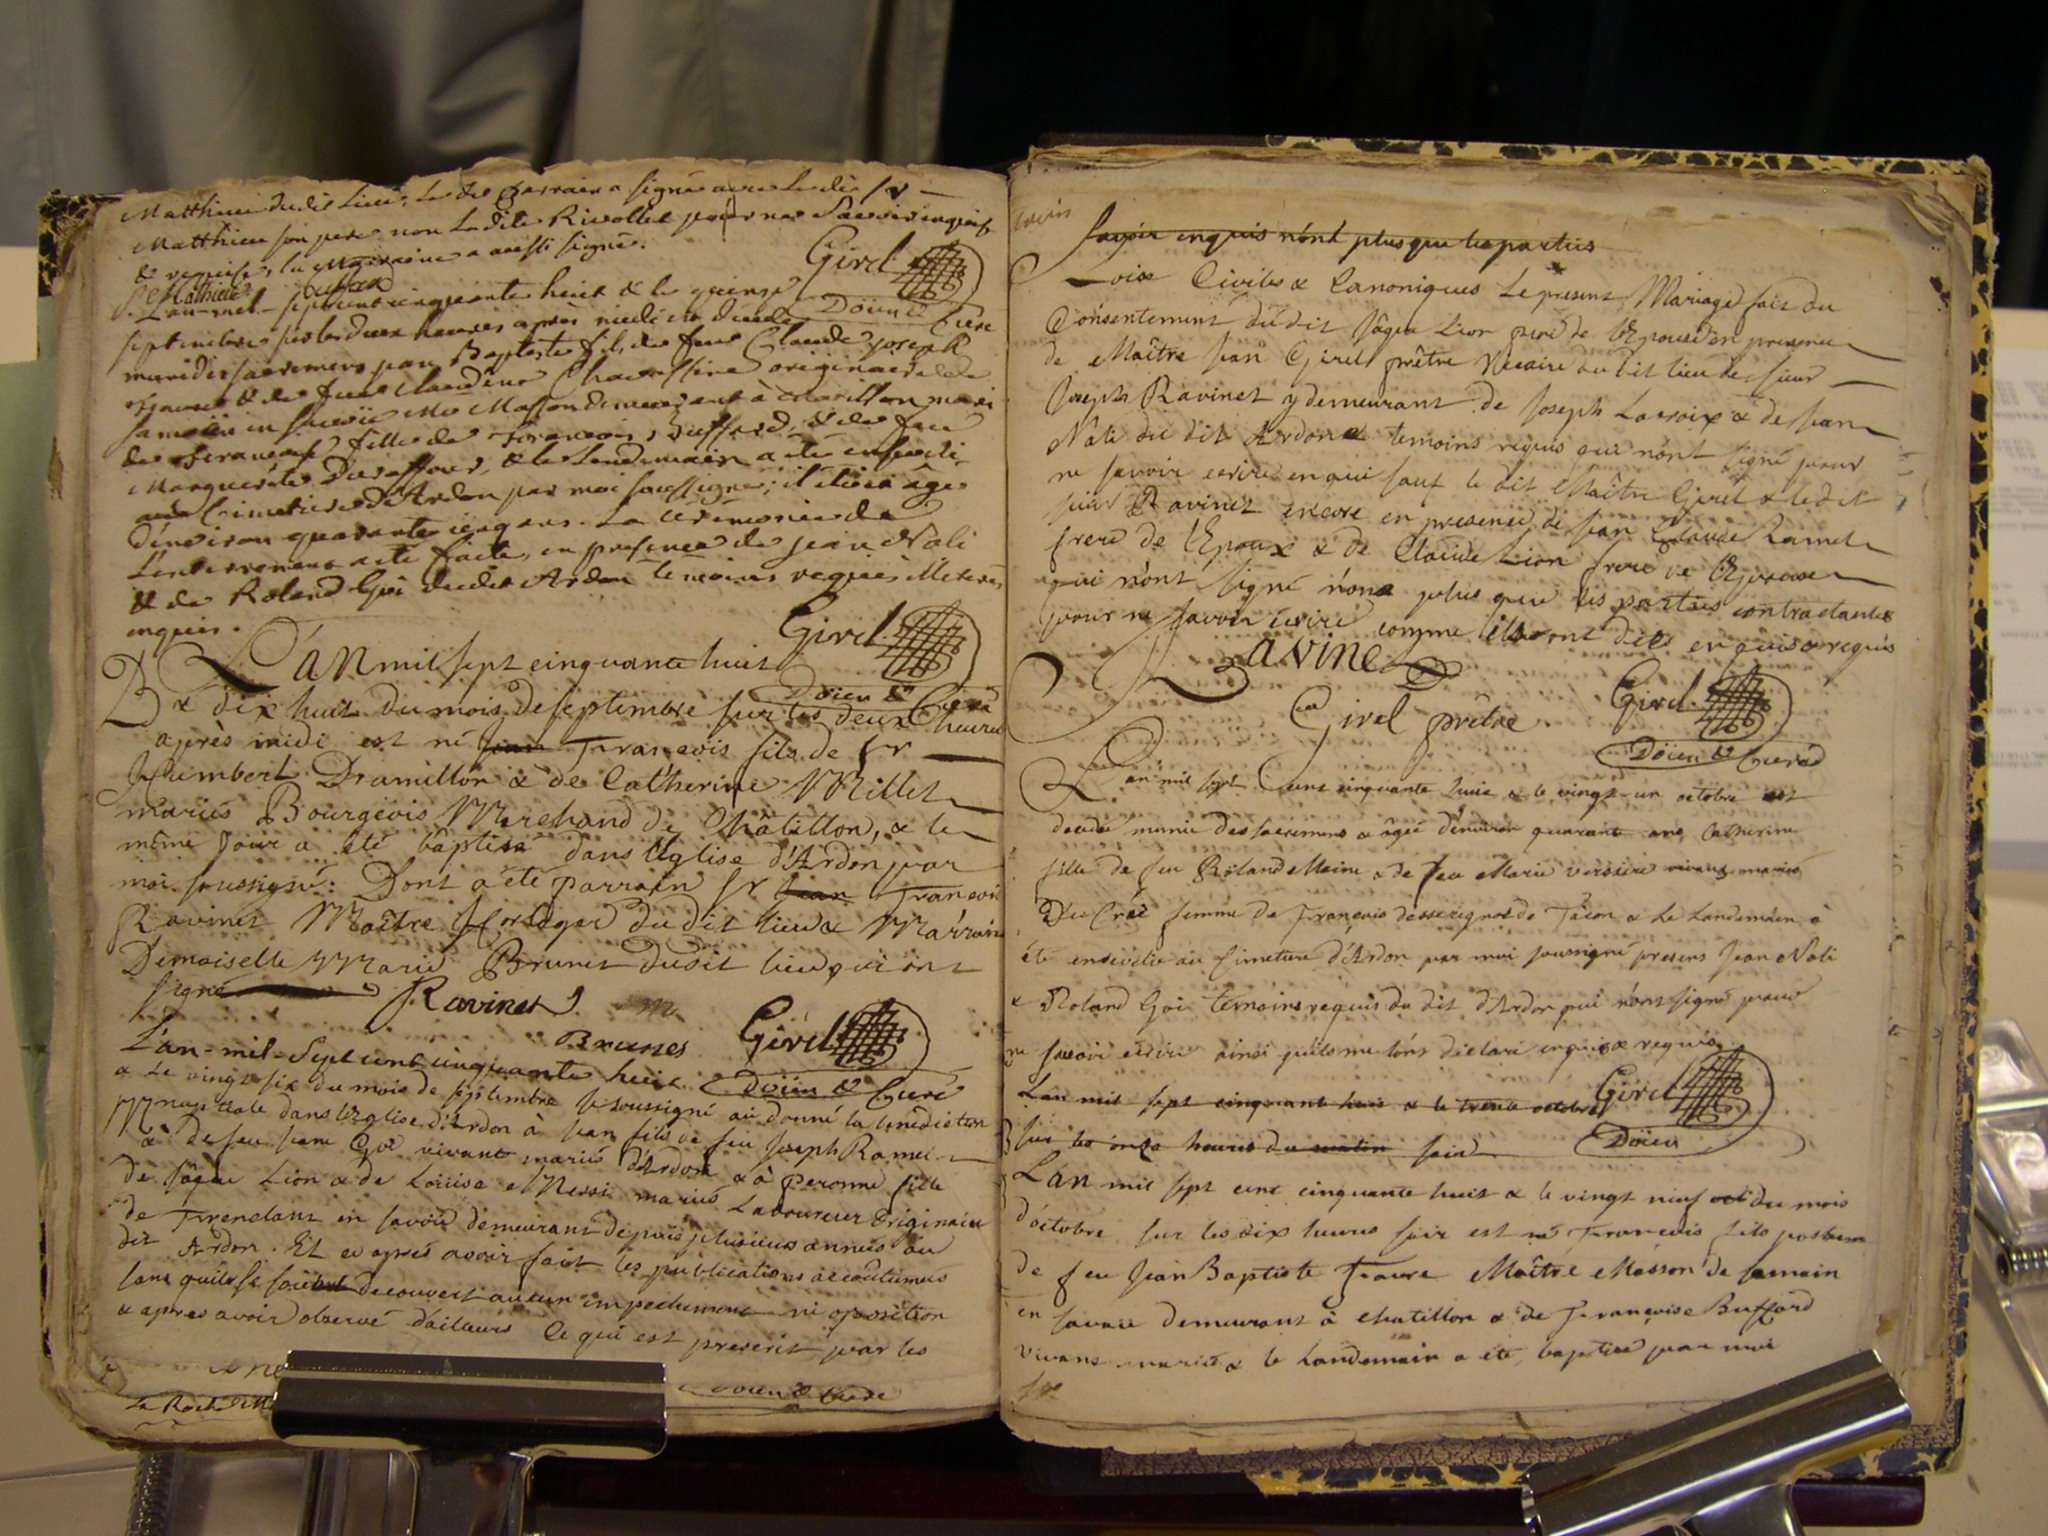 Matthieu dudit Lieu, Le dit parrain a signé avec Le dit Sr
Matthieu son pere non La dite Rivollet pour ne Savoir enquise
& requise, la Marraine a aussi signé.
Girel
Doïen & Curé
L'an-mil-sept cent cinquante huit & le quinze
septembre sur les deux heures après midi est décédé
muni des sacremens jean Baptiste fils de feu Claude joseph
& de feue Claudine originaire de
en Savoïe Me Masson demeurant à Chatillon mari
de Françoise fille de François Buffard, & de feu
Marguerite & le Lendemain a été enseveli
au Cimetiere d'Ardon par moi soussigné; il étoit âgé
d'environ quarante cinq ans. La cérémonie de
L'enterrement a été faite, en présence de jean Nali
& de Roland Goi dudit Ardon témoins requis illeteres
enquis.
Girel
Doïen & Curé
B L'AN mil sept cinquante huit
& dix huit du mois de septembre sur les deux heures
après midi est né Jean François fils de Sr
Humbert Dramillon & de Catherine Millet
mariés Bourgeois Marchand de Châtillon, & le
même Jour a été baptisé dans l'Eglise d'Ardon par
moi soussigné: Dont a été parrain Sr Jean François
Ravinet Maître Horloger du dit lieu & Marraine
Demoiselle Marie Brunet dudit lieu qui ont
signé
Ravinet
Brunet
Girel
Doïen & Curé
L'an-mil-Sept cent cinquante huit
& Le vingt six du mois de septembre Je soussigné ai donné la bénédiction
Nuptiale dans l'Eglise d'Ardon à Jean fils de feu Joseph Ramel
& de feu Jeane Goi vivants mariés d'Ardon & à Peronne fille
de Jâque Lion & de Loüise Nessi mariés Laboureur originaire
de en savoie demeurant depuis plusieurs années au
dit Ardon. Et ce après avoir fait les publications accoutumés
sans quils se soient decouvert aucun empechement ni oposition
& apres avoir observé d'ailleurs Ce qui est prescrit par les
Doïen & Curé
La Roch
savoir enquis n'ont plus que les parties
Loix Civiles & Canoniques Le present Mariage fait du
Consentement du dit Jâque Lion pere de l'Epouse en presence
de Maître Jean Girel prêtre Vicaire du dit lieu de sieur
Joseph Ravinet y demeurant de Joseph Lacroix & de Jean
Nali du dit Ardon temoins requis qui n'ont signé pour
ne savoir ecrire enquis sauf le dit Maître Girel & le dit
sieur Ravinet encore en presence de Jean Claude Ramel
frere de l'Epoux & de Claude Lion frere de l'Epouse
qui n'ont signé non plus que les parties contractantes
pour ne savoir ecrire comme ils ont dits enquis & requis
Ravinet
Girel prêtre
Girel
Doïen & Curé
L'an mil sept Cent cinquante huit & le vingt un octobre est
decedée munie des sacremens & âgée d'environ quarante ans Catherine
fille de feu Roland Moine & de feu Marie vivants mariés
femme de François de & Le Landemain à
été ensevelie au Cimetiere d'Ardon par moi soussigné presens Jean Nali
& Roland Goi temoins requis du dit d'Ardon qui n'ont signé pour
ne savoir ecrire ainsi quils me l'ont declaré enquis & requis
Girel
Doïen
L'an mil sept cinquant huit & le trente octobre
sur les onze heures du matin soir
L'AN mil sept cent cinquante huit & le vingt neuf oct du mois
d'octobre sur les dix heures soir est né François fils posthum
de feu Jean Baptiste Favre Maître Masson de samoin
en savoie demeurant à Chatillon & de Françoise Buffard
vivans mariés & le Landemain a été baptisé par moi